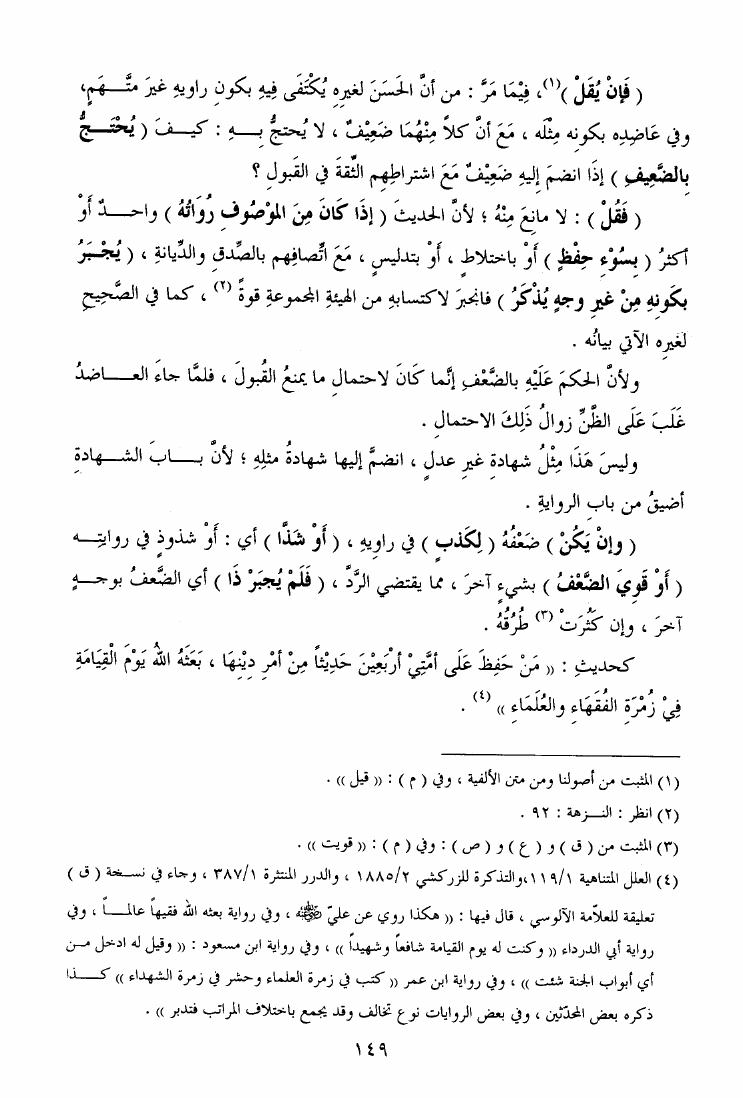 ( فَإِنْ يُقَلْ )(١)، فِيْمَا مَرَّ : من أنَّ الحَسَنَ لغيرِهِ يُكْتَفَى فِيهِ بكونِ راويهِ غيرَ متَّـــهَمٍ،
وفي عَاضِدِه بكونِه مِثْلَه ، مَعَ أنَّ كلاًّ مِنْهُمَا ضَعِيْفٌ ، لا يُحتجُّ بـــهِ : كيــفَ ( يُحْتَـــجُّ
بالضَّعِيفِ ) إذَا انضمَ إليهِ ضَعِيْفٌ مَعَ اشتراطِهِم الثِّقةَ في القَبولِ ؟
( فَقُلْ ) : لا مانعَ مِنْهُ ؛ لأنَّ الحديثَ ( إذَا كَانَ مِنَ المَوْصُوفِ رُوَاتُهُ ) واحــدٌ أوْ
أكثرُ ( بِسُوْءِ حِفْظٍ ) أوْ باختلاطٍ ، أوْ بتدليسٍ ، مَعَ اتِّصافِهم بالصِّدقِ والدِّيانةِ ، ( يُجْــبَرُ
بكَونِهِ مِنْ غيرِ وجهٍ يُذْكَرُ ) فانجبرَ لاكتسابهِ من الهيئةِ المجموعةِ قوةً (٢) ، كما في الصَّحِيحِ
لغيرِه الآتي بيانُه .
ولأنَّ الحكمَ عَلَيْهِ بالضَّعْفِ إنَّما كَانَ لاحتمالِ ما يمنعُ القُبولَ ، فلمَّا جاءَ العـــاضدُ
غَلَبَ عَلَى الظَّنِّ زوالُ ذَلِكَ الاحتمالِ .
وليسَ هَذَا مِثْلُ شهادةِ غيرِ عدلٍ ، انضمَّ إليها شهادةُ مثلِهِ ؛ لأنَّ بـــابَ الشــهادةِ
أضيقُ من بابِ الروايةِ .
( وإنْ يَكُنْ ) ضَعْفُهُ ( لِكَذبٍ ) في راويهِ ، ( أوْ شَذَّا ) أي : أوْ شذوذٍ في روايتِـــه
( أوْ قَوِيَ الضَّعْفُ ) بشيءٍ آخرَ ، مما يقتضي الرَّدَّ ، ( فَلَمْ يُجبَرْ ذَا ) أي الضَّعفُ بوجــهٍ
آخرَ ، وإن كَثُرَتْ (٣) طُرُقُهُ .
كحديثِ : (( مَنْ حَفِظَ عَلَى أمَّتِيْ أرْبَعِيْنَ حَدِيْثاً مِنْ أمْرِ دِيْنِهَا ، بَعَثَهُ اللهُ يَوْمَ القِيَامَةِ
فِيْ زُمْرَةِ الفُقَهَاءِ والعُلَمَاءِ )) (٤) .
(١) المثبت من أصولنا ومن متن الألفية ، وفي ( م ) : (( قيل )) .
(٢) انظر : النــزهة : ٩٢ .
(٣) المثبت من ( ق ) و ( ع ) و ( ص ) : وفي ( م ) : (( قويت )) .
(٤) العلل المتناهية ١١٩/١،والتذكرة للزركشي ١٨٨٥/٢ ، والدرر المنتثرة ٣٨٧/١ ، وجاء في نسـخة ( ق )
تعليقة للعلاّمة الآلوسي ، قال فيها : (( هكذا روي عن عليّ ﵁ ، وفي رواية بعثه الله فقيهاً عالمــاً ، وفي
رواية أبي الدرداء (( وكنت له يوم القيامة شافعاً وشهيداً )) ، وفي رواية ابن مسعود : (( وقيل له ادخل مــن
أي أبواب الجنة شئت )) ، وفي رواية ابن عمر (( كتب في زمرة العلماء وحشر في زمرة الشهداء )) كـــذا
ذكره بعض المحدّثين ، وفي بعض الروايات نوع تخالف وقد يجمع باختلاف المراتب فتدبر )) .
١٤٩